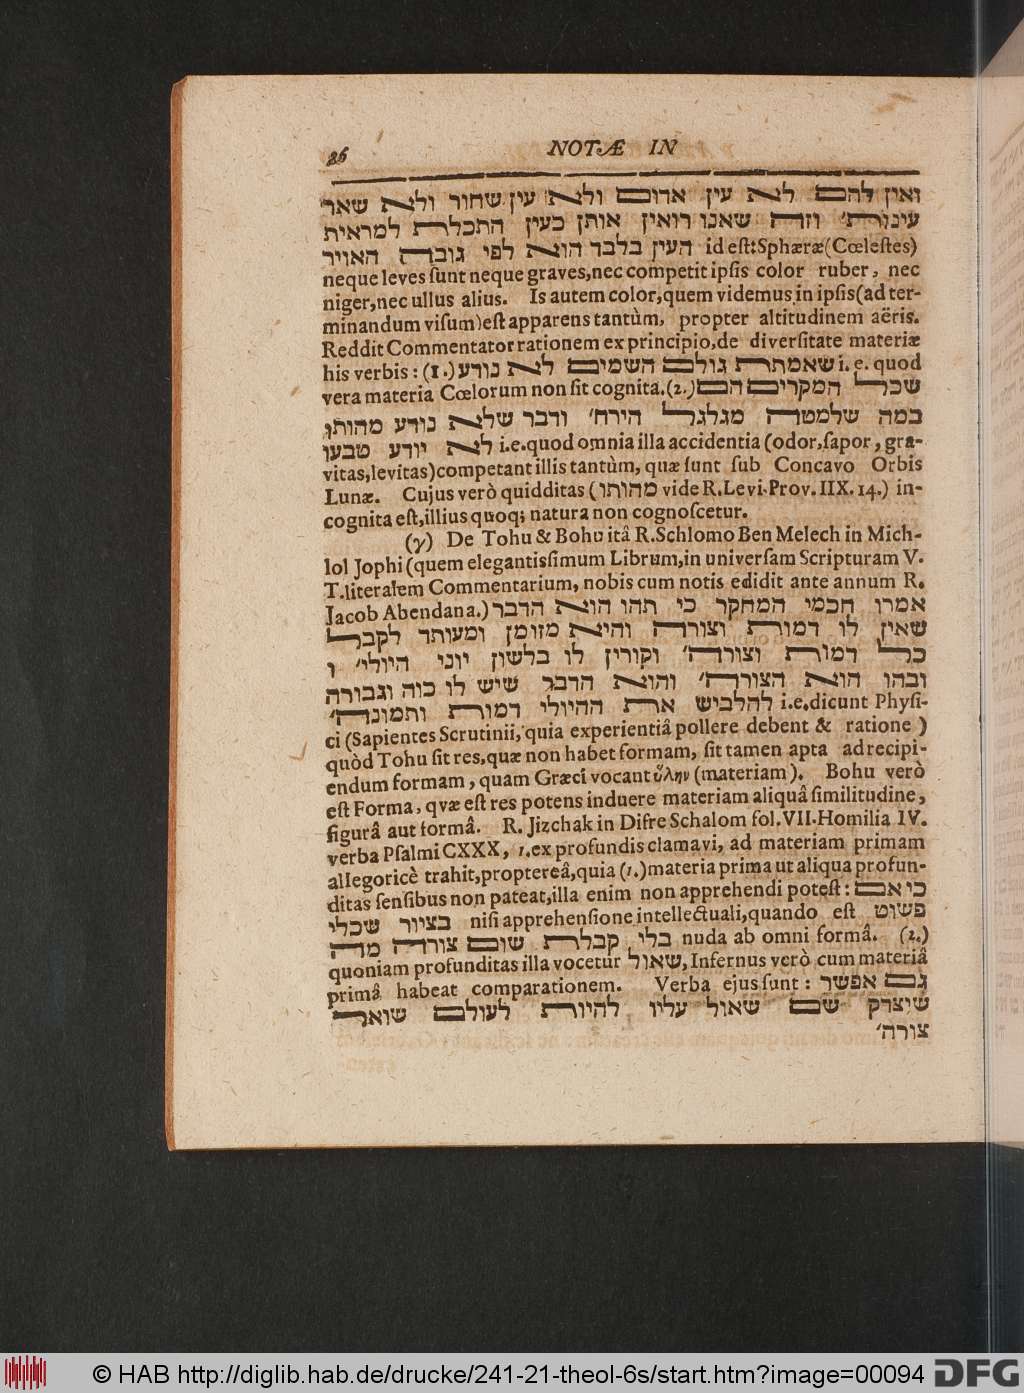 86 NOTÆ IN
ואין להם לא עין אדום ולא עין שחור ולא שאר
עינות׳ וזה שאנו רואין אותן כעין התכלת למראית
העין בלבד הוא לפי גובה האויר id est: Sphæræ (Cœlestes)
neque leves ſunt neque graves, nec competit ipſis color ruber, nec
niger, nec ullus alius. Is autem color, quem videmus in ipſis (ad ter-
minandum viſum) eſt apparens tantùm, propter altitudinem aëris.
Reddit Commentator rationem ex principio, de diverſitate materiæ
his verbis: (1.) שאמתת גולם השמים לא נודע i. e. quod
vera materia Cœlorum non ſit cognita. (2.) שכל המקרים הם
במה שלמטה מגלגל הירח׳ ודבר שלא נודע מהותו
לא יודע טבעו i. e. quod omnia illa accidentia (odor, ſapor, gra-
vitas, levitas) competant illis tantùm, quæ ſunt ſub Concavo Orbis
Lunæ. Cujus verò quidditas (מהותו vide R. Levi. Prov. IIX. 14.) in-
cognita eſt, illius quoq; natura non cognoſcetur.
(γ) De Tohu & Bohu itâ R. Schlomo Ben Melech in Mich-
lol Jophi (quem elegantisſimum Librum, in univerſam Scripturam V.
T. literalem Commentarium, nobis cum notis edidit ante annum R.
Jacob Abendana.) אמרו חכמי המחקר כי תהו הוא הדבר
שאין לו דמות וצורה והיא מזומן ומעותד לקבל
כל דמות וצורה׳ וקורין לו בלשון יוני היולי׳ ו
ובהו הוא הצורה׳ והוא הדבר שיש לו כוה וגבורה
להלביש את ההיולי דמות ותמונה׳ i. e. dicunt Phyſi-
ci (Sapientes Scrutinii, quia experientiâ pollere debent & ratione)
quòd Tohu ſit res, quæ non habet formam, ſit tamen apta ad recipi-
endum formam, quam Græci vocant ὕλην (materiam). Bohu verò
eſt Forma, qvæ eſt res potens induere materiam aliquâ ſimilitudine,
figurâ aut formâ. R. Jizchak in Difre Schalom fol. VII. Homilia IV.
verba Pſalmi CXXX, 1. ex profundis clamavi, ad materiam primam
allegoricè trahit, proptereâ, quia (1.) materia prima ut aliqua profun-
ditas ſenſibus non pateat, illa enim non apprehendi poteſt: כי אם
בציור שכלי niſi apprehenſione intellectuali, quando eſt פשוט
בלי קבלת שום צורה מה nuda ab omni formâ. (2.)
quoniam profunditas illa vocetur שאול, Infernus verò cum materiâ
primâ habeat comparationem. Verba ejus ſunt: גם אפשר
שיצדק שם שאול עליו להיות לעולם שואר
צורה׳
© HAB http://diglib.hab.de/drucke/241-21-theol-6s/start.htm?image=00094
DFG